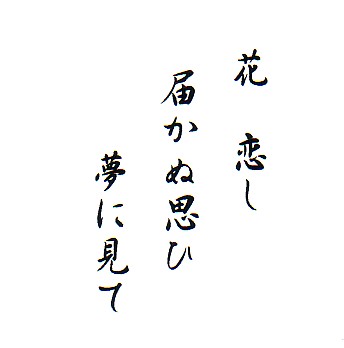 花　恋し
届かぬ思ひ
夢に見て